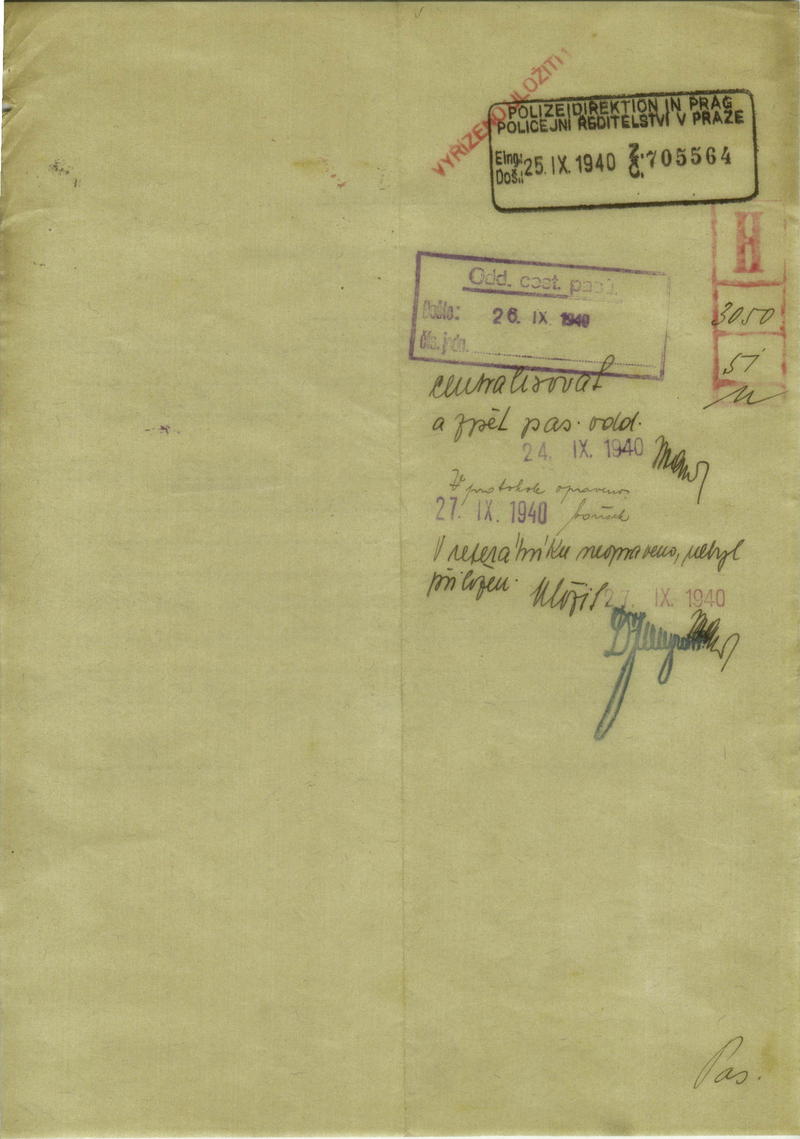 VYŘÍZENO ULOŽITI
POLIZEIDIREKTION IN PRAG
POLICEJNÍ ŘEDITELSTVÍ V PRAZE
Eing.:
Doš.:
25. IX. 1940
Z.
Č.
705564
H
3050
51
Odd. cest. pasů.
Došlo: 26. IX 1940
čís. jedn.
centralisovat
a zpět pas. odd.
24. IX. 1940
V protokole opraveno
27. IX. 1940
V referátníku neopraveno, nebyl
přiložen.
Uložit 27. IX. 1940
Pas.